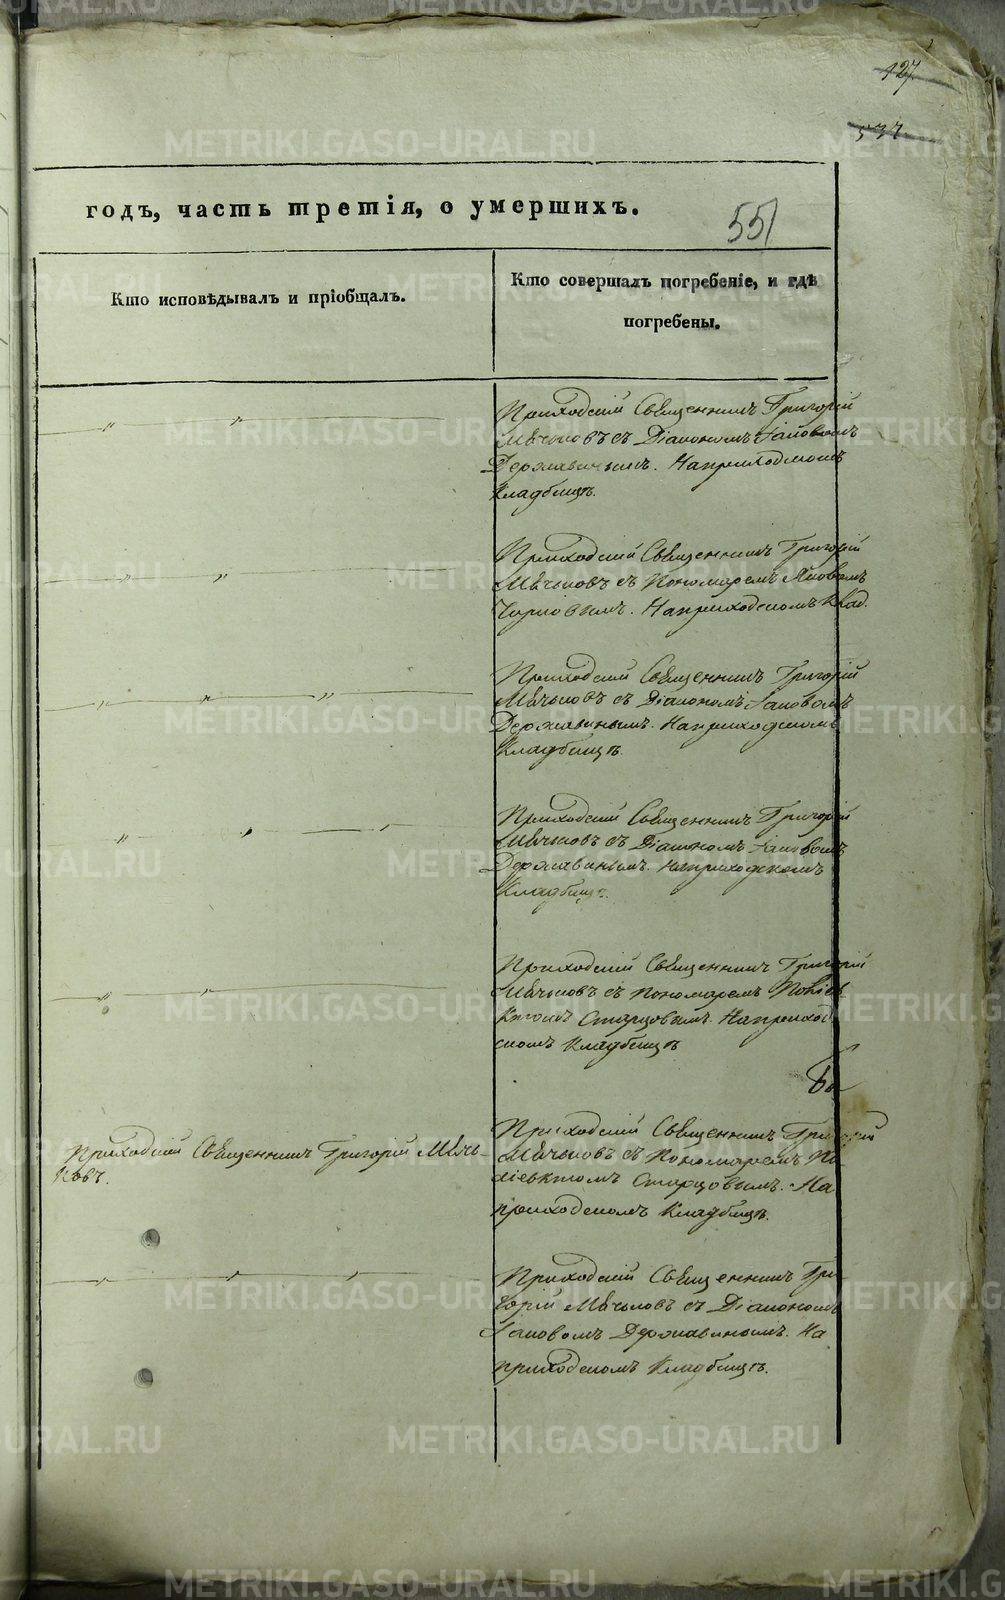 127
537
годъ, часть третія, о умершихъ.
551
Кто исповѣдывалъ и пріобщалъ.
Кто совершалъ погребеніе, и гдѣ
погребены.
Приходскій Священникъ Григорій
Мячьковъ съ Діакономъ Іаковомъ
Державинымъ. На приходскомъ
Кладбищѣ.
Приходскій Священникъ Григорій
Мячьковъ съ Пономаремъ Яковомъ
На приходскомъ Клад.
Приходскій Священникъ Григорій
Мячьковъ съ Діакономъ Іаковомъ
Державинымъ. На приходскомъ
Кладбищѣ.
Приходскій Священникъ Григорій
Мячьковъ съ Діакономъ Іаковомъ
Державинымъ. На приходскомъ
Кладбищѣ.
Приходскій Священникъ Григорій
Мячьковъ съ Пономаремъ
Старцовымъ. На приход
скомъ Кладбищѣ
Приходскій Священникъ Григорій Мячь-
ковъ.
Приходскій Священникъ Григорій
Мячьковъ съ Пономаремъ
Старцовымъ. На
приходскомъ Кладбищѣ.
Приходскій Священникъ Гри
горій Мячьковъ съ Діакономъ
Іаковомъ Державинымъ. На
приходскомъ Кладбищѣ.
METRIKI.GASO-URAL.RU